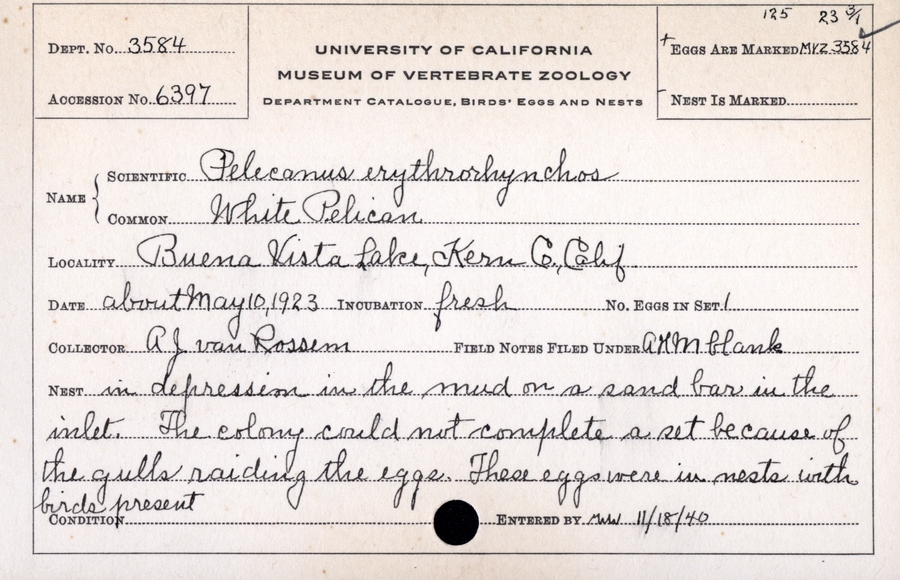 125 23 3/1
DEPT. NO. 3584
UNIVERSITY OF CALIFORNIA
+ EGGS ARE MARKED MVZ 3584
MUSEUM OF VERTEBRATE ZOOLOGY
ACCESSION NO. 6397
DEPARTMENT CATALOGUE, BIRDS' EGGS AND NESTS
- NEST IS MARKED
NAME { SCIENTIFIC Pelecanus erythrorhynchos
COMMON White Pelican
LOCALITY Buena Vista Lake, Kern Co., Calif.
DATE about May 10, 1923 INCUBATION fresh NO. EGGS IN SET 1
COLLECTOR A J van Rossem FIELD NOTES FILED UNDER AHM blank
NEST in depression in the mud on a sand bar in the
inlet. The colony could not complete a set because of
the gulls raiding the eggs. These eggs were in nests with
birds present
CONDITION ENTERED BY 11/18/40